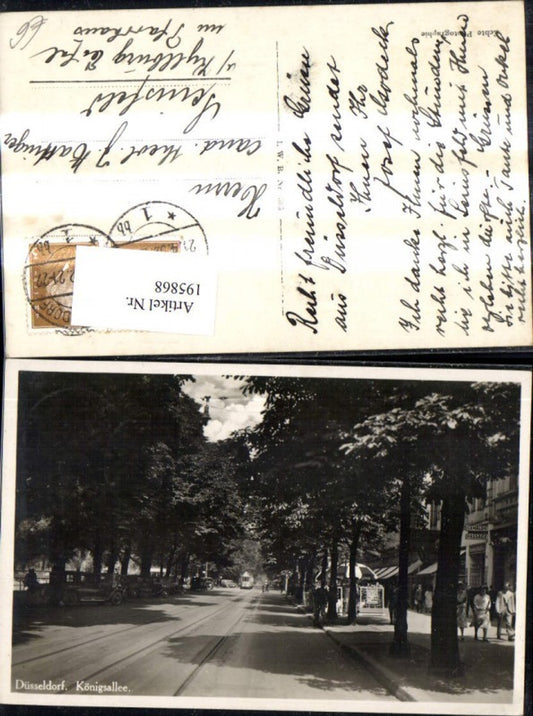 Echte Photographie
Recht freundliche Grüsse
aus Düsseldorf sendet
Ihnen Ihr
Josef
Ich danke Ihnen nochmals
recht herzl. für die Stunden,
die ich in Seinsfeld mit Ihnen
verleben durfte. Grüssen
Sie bitte auch Tante und Onkel
recht herzl.
Herrn
cand. theol. J.
Seinsfeld
b/ Kyllburg Eifel
im Pfarrhaus
Artikel Nr.
195868
Düsseldorf. Königsallee.